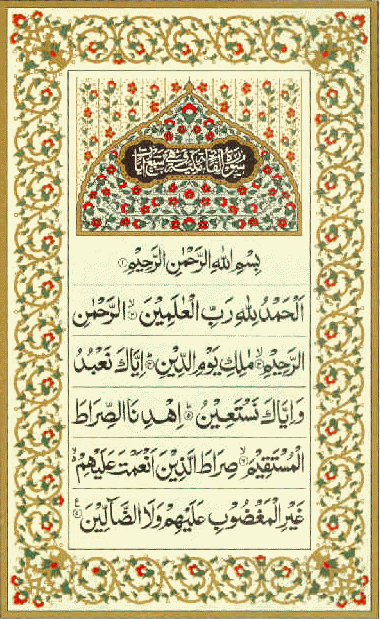 سورة الفاتحة مكية وهي سبع آيات
بِسْمِ اللهِ الرَّحْمٰنِ الرَّحِيْمِ ۝١
اَلْحَمْدُ لِلّٰهِ رَبِّ الْعٰلَمِيْنَ ۝٢ الرَّحْمٰنِ
الرَّحِيْمِ ۝٣ مٰلِكِ يَوْمِ الدِّيْنِ ۝٤ اِيَّاكَ نَعْبُدُ
وَاِيَّاكَ نَسْتَعِيْنُ ۝٥ اِهْدِنَا الصِّرَاطَ
الْمُسْتَقِيْمَ ۝٦ صِرَاطَ الَّذِيْنَ اَنْعَمْتَ عَلَيْهِمْ
غَيْرِ الْمَغْضُوْبِ عَلَيْهِمْ وَلَا الضَّآلِّيْنَ